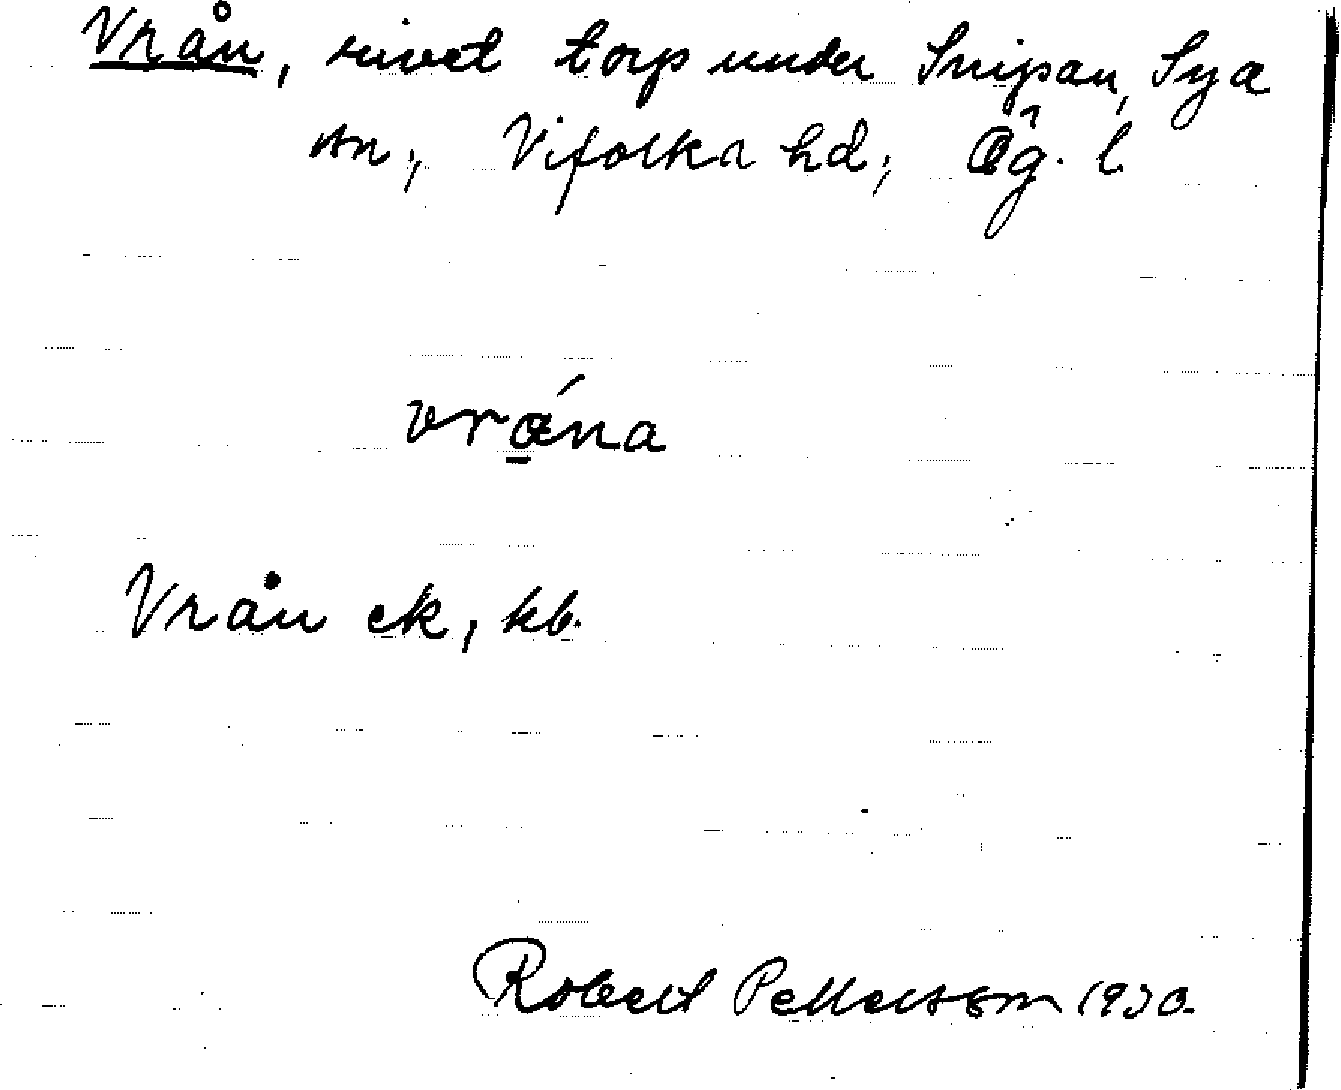 Vrån, rivet torp under Snipan, Sya
sn, Vifolka hd, Ög. l.
vrǻna
Vrån ek, kb.
Robert Pettersson 1930.